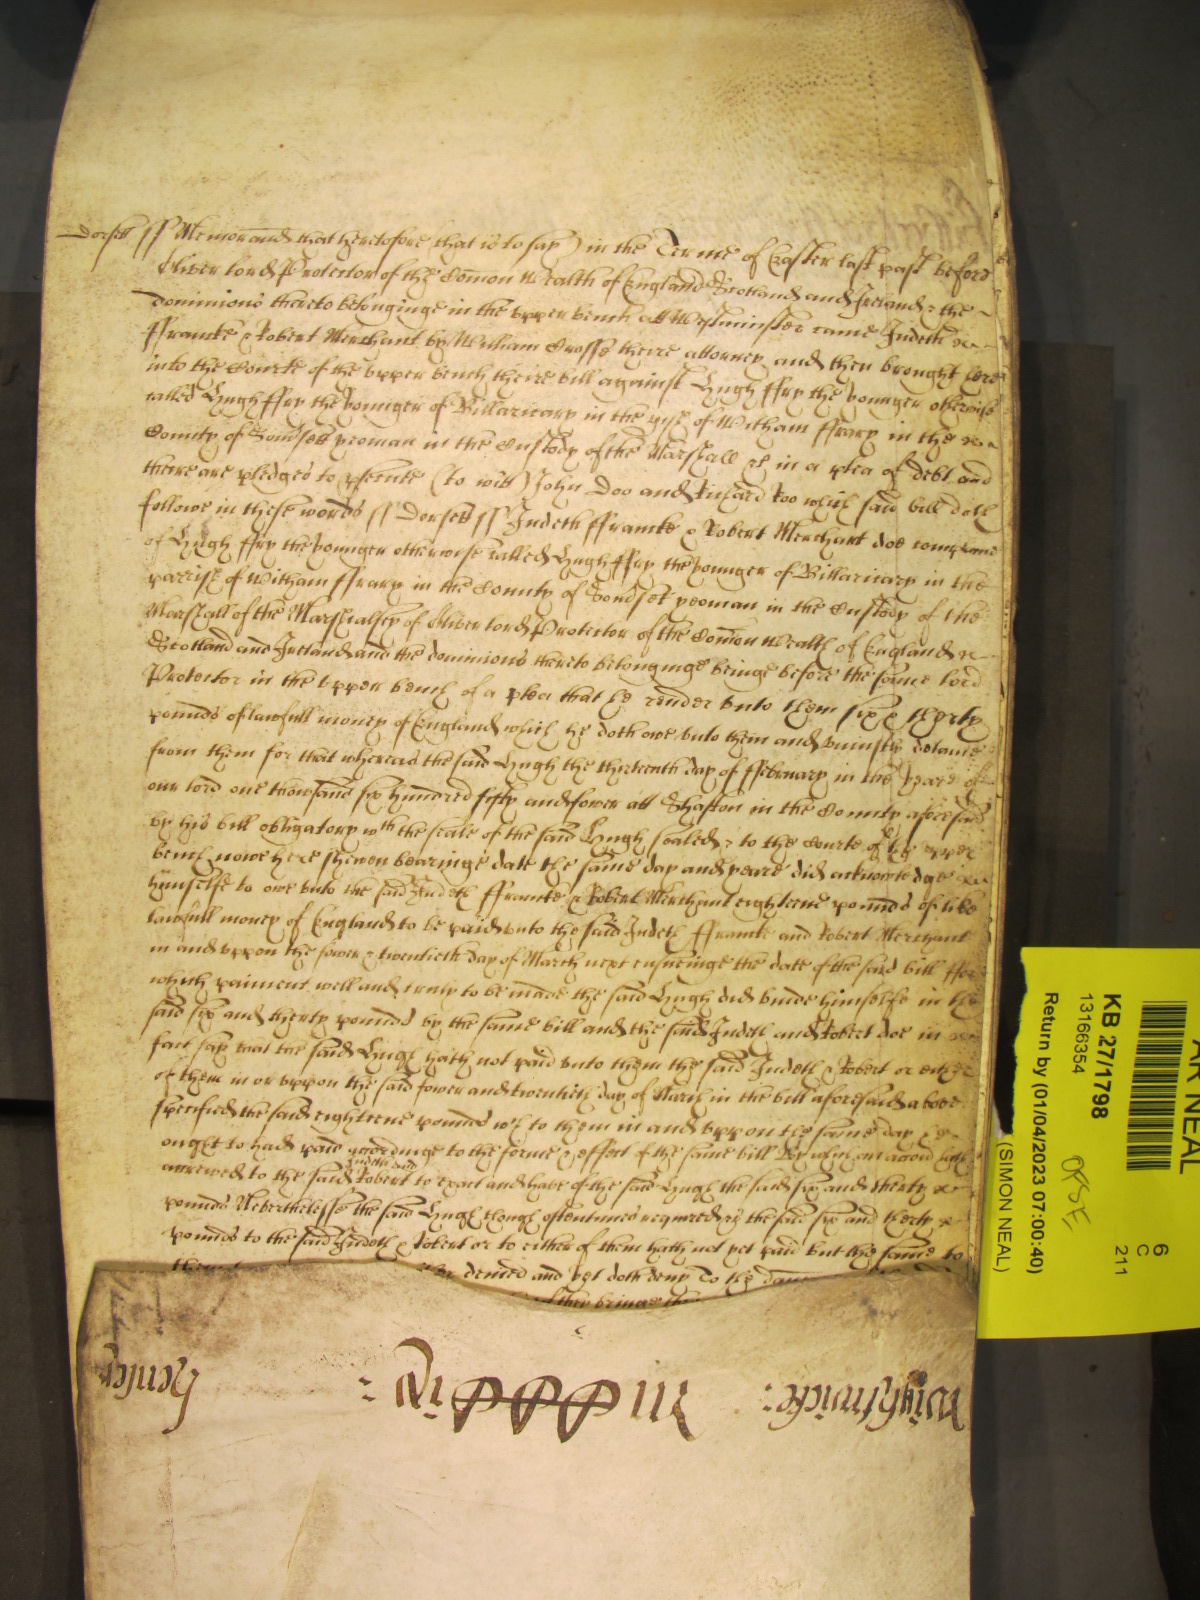 Dorsett ss Memorand that heretofore that is to say in the Terme of Easter last past before
Oliver lord Protector of the Comon Wealth of England Scotland and Ireland & the
dominions thereto belonginge in the upper bench att Westminster came Judeth
ffrancke & Robert Merchant by William Crosse theire attorney and then brought here
into the Courte of the upper bench theire bill against Hugh ffry the younger otherwise
called Hugh ffry the younger of Billaricary in the pish of Witham ffrary in the
County of Somset yeoman in the Custody of the Marshall &c in a plea of debt and
there are pledges to psecute (to witt) John Doo and Richard Roo which said bill doth
followe in these words ss Dorsett ss Judeth ffrancke & Robert Merchant doe complaine
of Hugh ffry the younger otherwise called Hugh ffry the younger of Billaricary in the
parrish of Witham ffrary in the County of Somset yeoman in the Custody of the
Marshall of the Marshalsey of Oliver lord Protector of the Comon Wealth of England
Scotland and Ireland and the dominions thereto belonginge beinge before the same lord
Protector in the upper bench of a plea that he render unto them six & therty
pounds of lawfull money of England which he doth owe unto them and uniustly detaine
from them for that whereas the said Hugh the thirteenth day of ffebruary in the yeare of
our lord one thowsand six hundred fifty and fower att Shaston in the County aforesaid
by his bill obligatory wth the seale of the said Hugh sealed & to the Courte of the upper
bench nowe here shewen bearinge date the same day and yeare did acknowledge
himselfe to owe unto the said Judeth ffrancke & Robert Merchant eighteene pounds of like
lawfull money of England to be paid unto the said Judeth ffrancke and Robert Merchant
in and uppon the fower & twentieth day of March next ensueinge the date of the said bill ffor
which paiment well and truly to be made the said Hugh did binde himselfe in the
said six and therty pounds by the same bill and the said Judeth and Robert doe in
fact say that the said Hugh hath not paid unto them the said Judeth & Robert or either
of them in or uppon the said fower and twentieth day of March in the bill aforesaid above
specified the said eighteene pounds wch to them in and uppon the same day he
ought to have paid accordinge to the forme & effect of the same bill By which an accon hath
Judeth and
accrewed to the said Robert to exact and have of the said Hugh the said six and therty
pounds Neverthelesse the said Hugh though oftentimes required the said six and therty
pounds to the said Judeth & Robert or to either of them hath not yet paid but the same to
denied and yet doth deny To the
they bringe
Wightwicke:
Henley
AR NEAL
KB 27/1798
13166354
Return by (01/04/2023 07:00:40)
(SIMON NEAL)
6
C
211